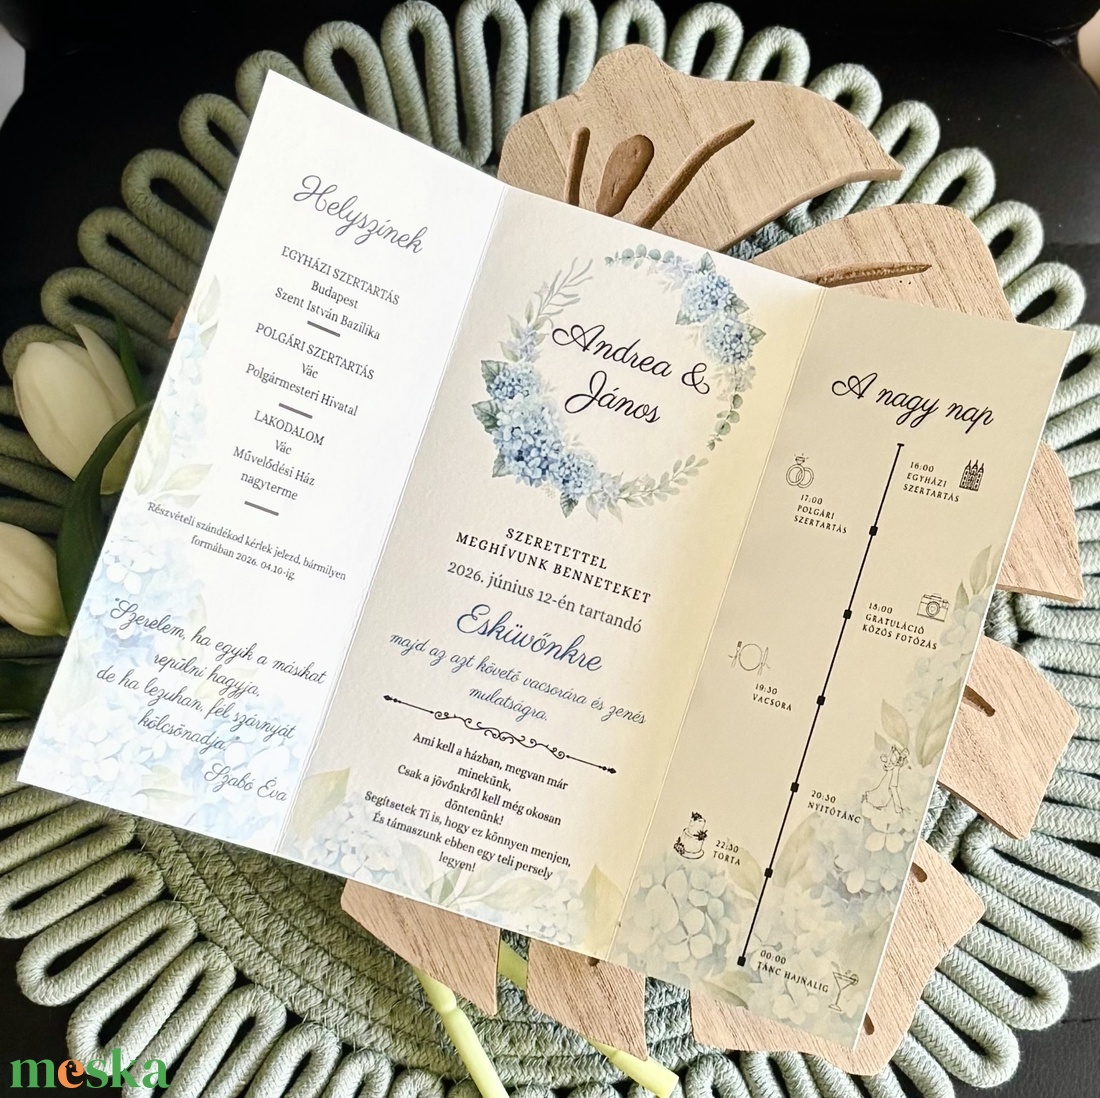 Helyszínek
EGYHÁZI SZERTARTÁS
Budapest
Szent István Bazilika
POLGÁRI SZERTARTÁS
Vác
Polgármesteri Hivatal
LAKODALOM
Vác
Művelődési Ház
nagyterme
Részvételi szándékod kérlek jelezd, bármilyen
formában 2026. 04.10-ig.
"Szerelem, ha egyik a másikat
repülni hagyja,
de ha lezuhan, fél szárnyát
kölcsönadja."
Szabó Éva
Andrea &
János
SZERETETTEL
MEGHÍVUNK BENNETEKET
2026. június 12-én tartandó
Esküvőnkre
majd az azt követő vacsorára és zenés
mulatságra.
Ami kell a házban, megvan már
minekünk,
Csak a jövőnkről kell még okosan
döntenünk!
Segítsetek Ti is, hogy ez könnyen menjen,
És támaszunk ebben egy teli persely
legyen!
A nagy nap
16:00
EGYHÁZI
SZERTARTÁS
17:00
POLGÁRI
SZERTARTÁS
18:00
GRATULÁCIÓ
KÖZÖS FOTÓZÁS
19:30
VACSORA
20:30
NYITÓTÁNC
22:30
TORTA
00:00
TÁNC HAJNALIG
meska